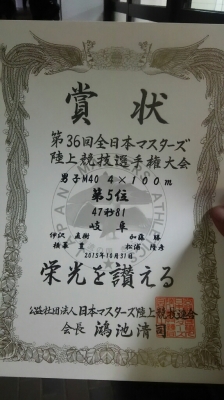 賞状
第36回全日本マスターズ
陸上競技選手権大会
男子M40 4×100m
第5位
47秒81
岐阜
伊沢 直樹 加藤 勝
松浦 隆彦
2015年10月31日
栄光を讃える
公益社団法人日本マスターズ陸上競技連合
会長 鴻池清司